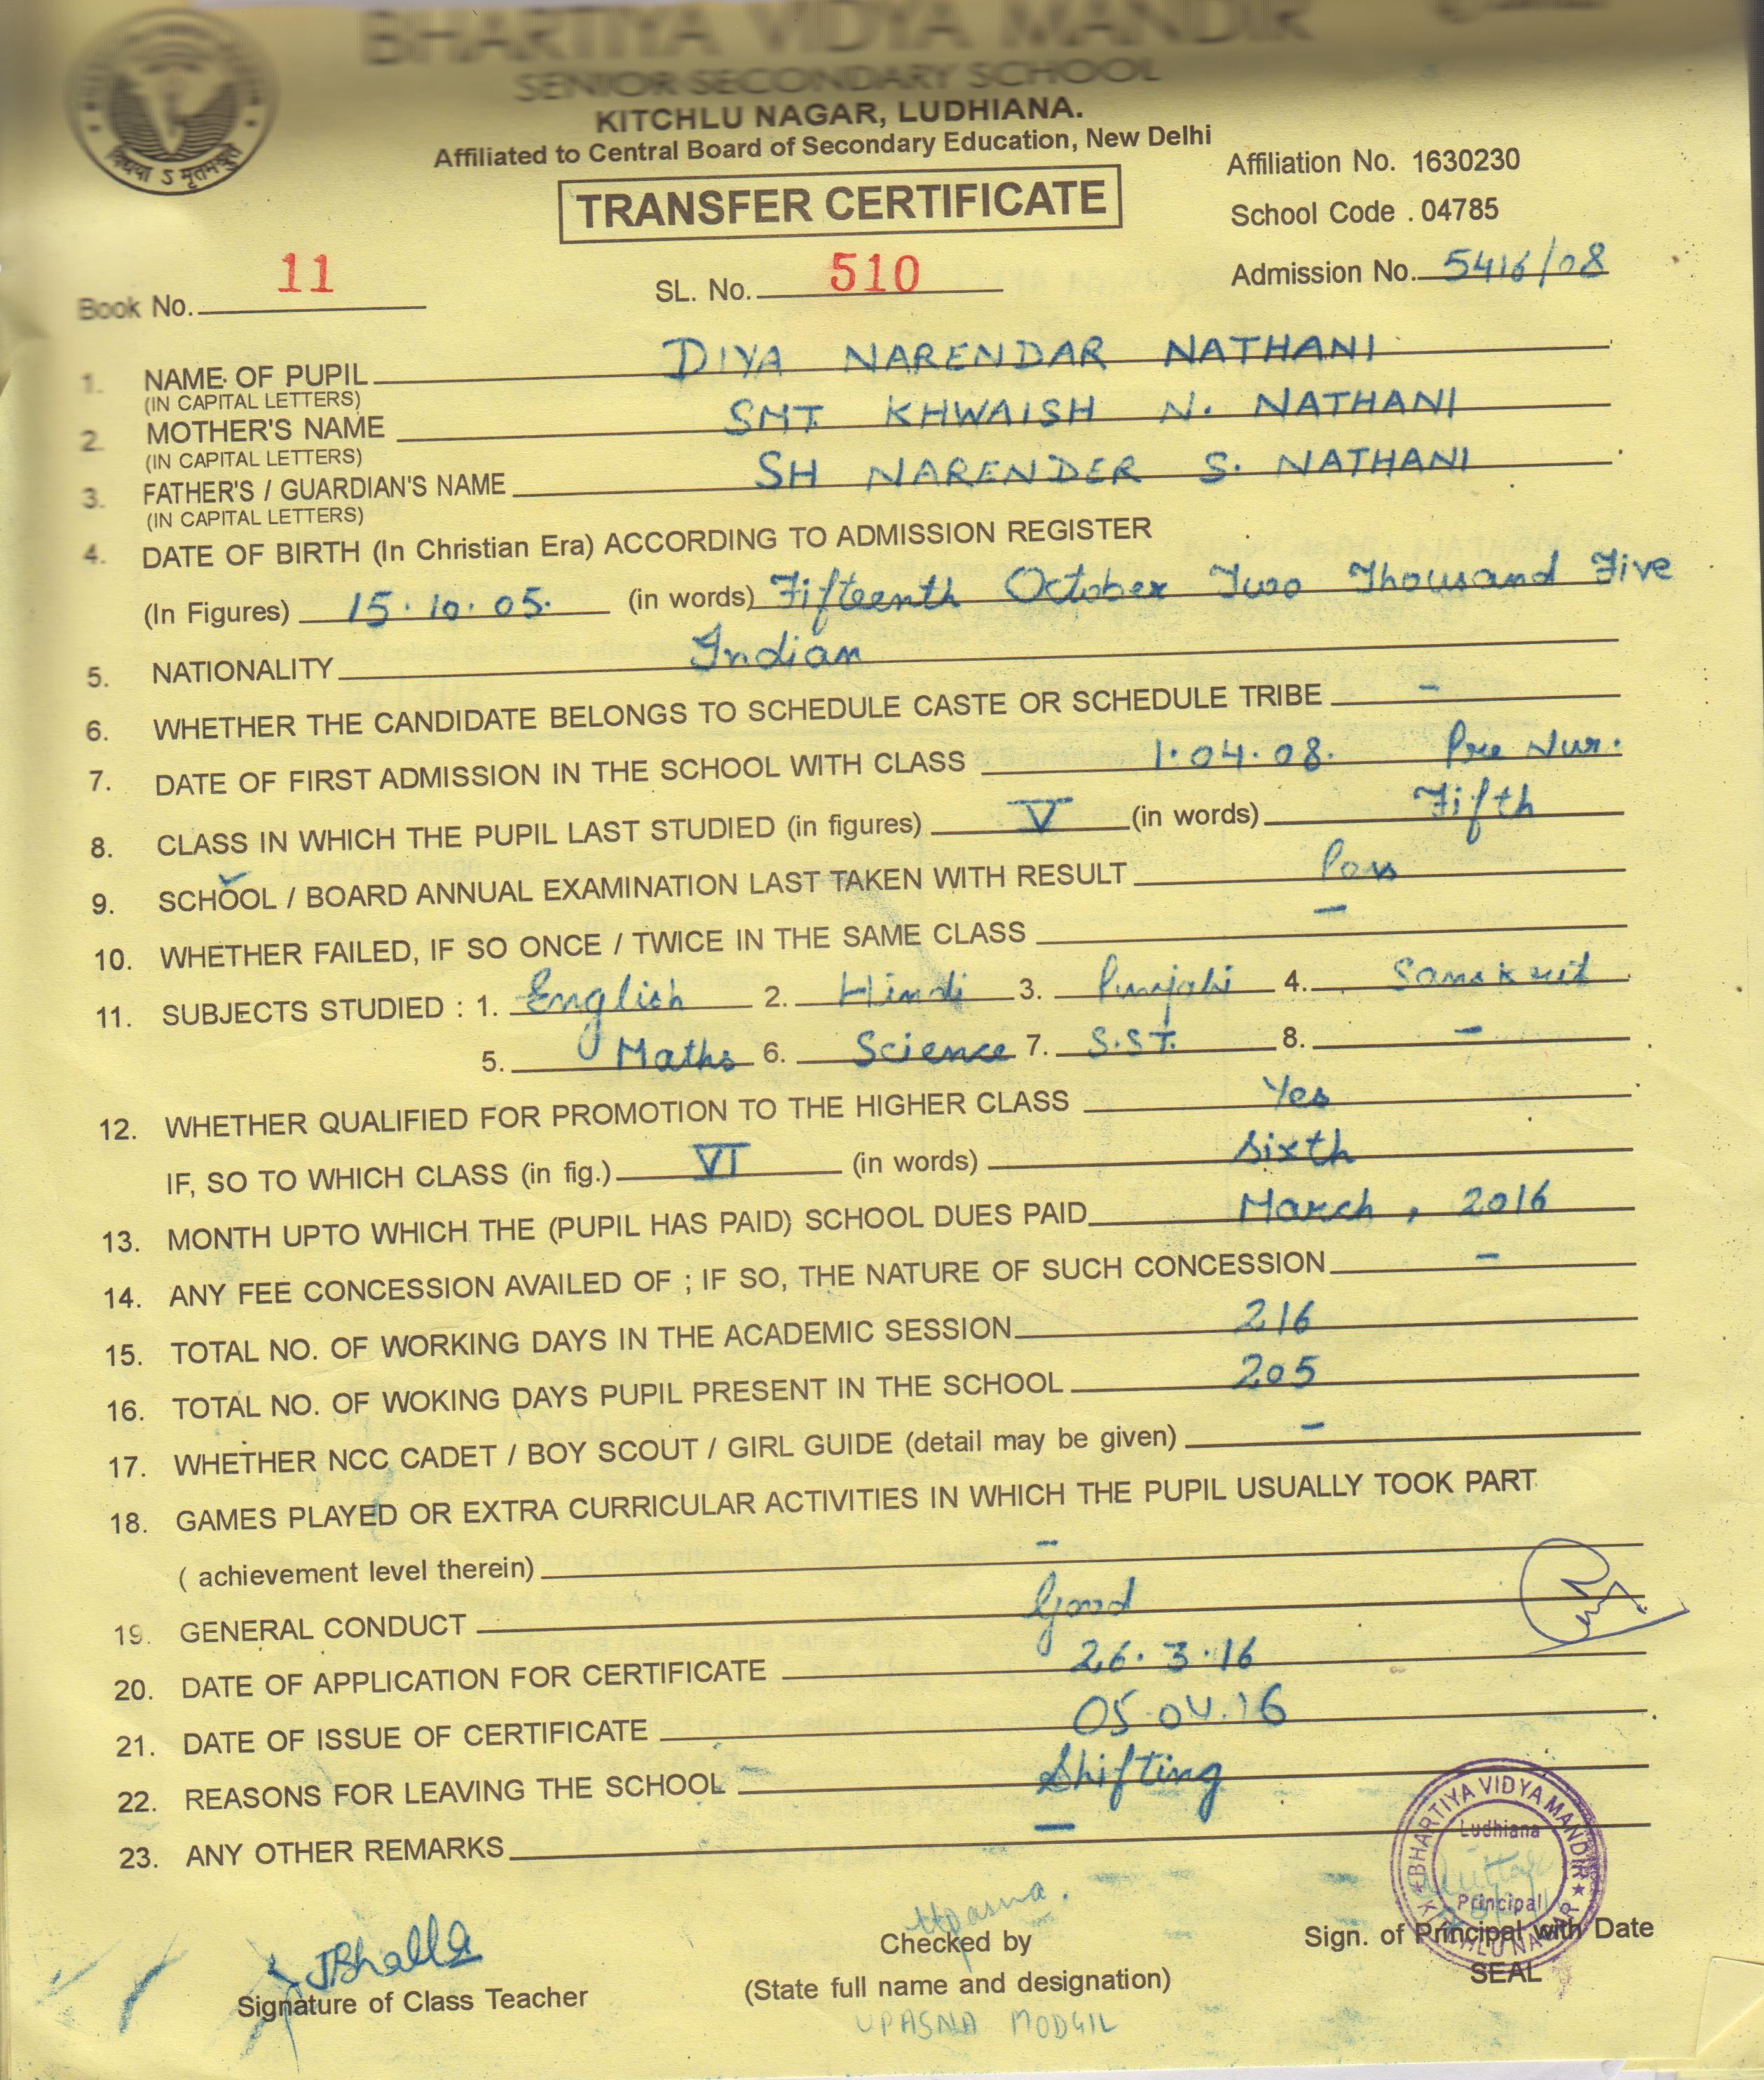 BHARTIYA VIDYA MANDIR
SENIOR SECONDARY SCHOOL
KITCHLU NAGAR, LUDHIANA.
Affiliated to Central Board of Secondary Education, New Delhi
Affiliation No. 1630230
TRANSFER CERTIFICATE
School Code . 04785
Book No. 11 SL. No. 510 Admission No. 5416/08
1. NAME OF PUPIL DIYA NARENDAR NATHANI
(IN CAPITAL LETTERS)
2. MOTHER'S NAME SMT. KHWAISH N. NATHANI
(IN CAPITAL LETTERS)
3. FATHER'S / GUARDIAN'S NAME SH NARENDER S. NATHANI
(IN CAPITAL LETTERS)
4. DATE OF BIRTH (In Christian Era) ACCORDING TO ADMISSION REGISTER
(In Figures) 15.10.05. (in words) Fifteenth October Two Thousand Five
5. NATIONALITY Indian
6. WHETHER THE CANDIDATE BELONGS TO SCHEDULE CASTE OR SCHEDULE TRIBE –
7. DATE OF FIRST ADMISSION IN THE SCHOOL WITH CLASS 1.04.08. Pre Nur.
8. CLASS IN WHICH THE PUPIL LAST STUDIED (in figures) V (in words) Fifth
9. SCHOOL / BOARD ANNUAL EXAMINATION LAST TAKEN WITH RESULT Pass
10. WHETHER FAILED, IF SO ONCE / TWICE IN THE SAME CLASS –
11. SUBJECTS STUDIED : 1. English 2. Hindi 3. Punjabi 4. Sanskrit
5. Maths 6. Science 7. S.ST. 8. –
12. WHETHER QUALIFIED FOR PROMOTION TO THE HIGHER CLASS Yes
IF, SO TO WHICH CLASS (in fig.) VI (in words) Sixth
13. MONTH UPTO WHICH THE (PUPIL HAS PAID) SCHOOL DUES PAID March, 2016
14. ANY FEE CONCESSION AVAILED OF ; IF SO, THE NATURE OF SUCH CONCESSION –
15. TOTAL NO. OF WORKING DAYS IN THE ACADEMIC SESSION 216
16. TOTAL NO. OF WOKING DAYS PUPIL PRESENT IN THE SCHOOL 205
17. WHETHER NCC CADET / BOY SCOUT / GIRL GUIDE (detail may be given) –
18. GAMES PLAYED OR EXTRA CURRICULAR ACTIVITIES IN WHICH THE PUPIL USUALLY TOOK PART
( achievement level therein) –
19. GENERAL CONDUCT Good
20. DATE OF APPLICATION FOR CERTIFICATE 26.3.16
21. DATE OF ISSUE OF CERTIFICATE 05.04.16
22. REASONS FOR LEAVING THE SCHOOL Shifting
23. ANY OTHER REMARKS –
BHARTIYA VIDYA MANDIR
Ludhiana
Principal
KITCHLU NAGAR
JBhalla Upasna.
Signature of Class Teacher Checked by Sign. of Principal with Date
(State full name and designation) SEAL
UPASNA MODGIL